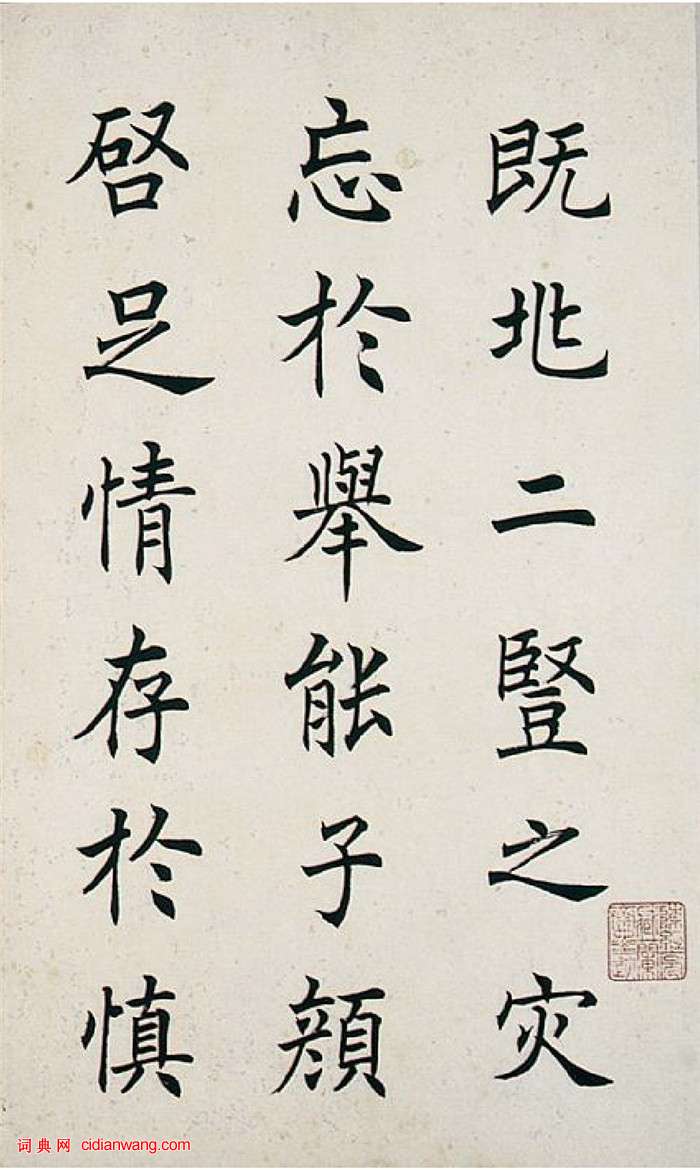 既兆二豎之灾
忘於舉能子顔
啓足情存於慎
词典网 cidianwang.com